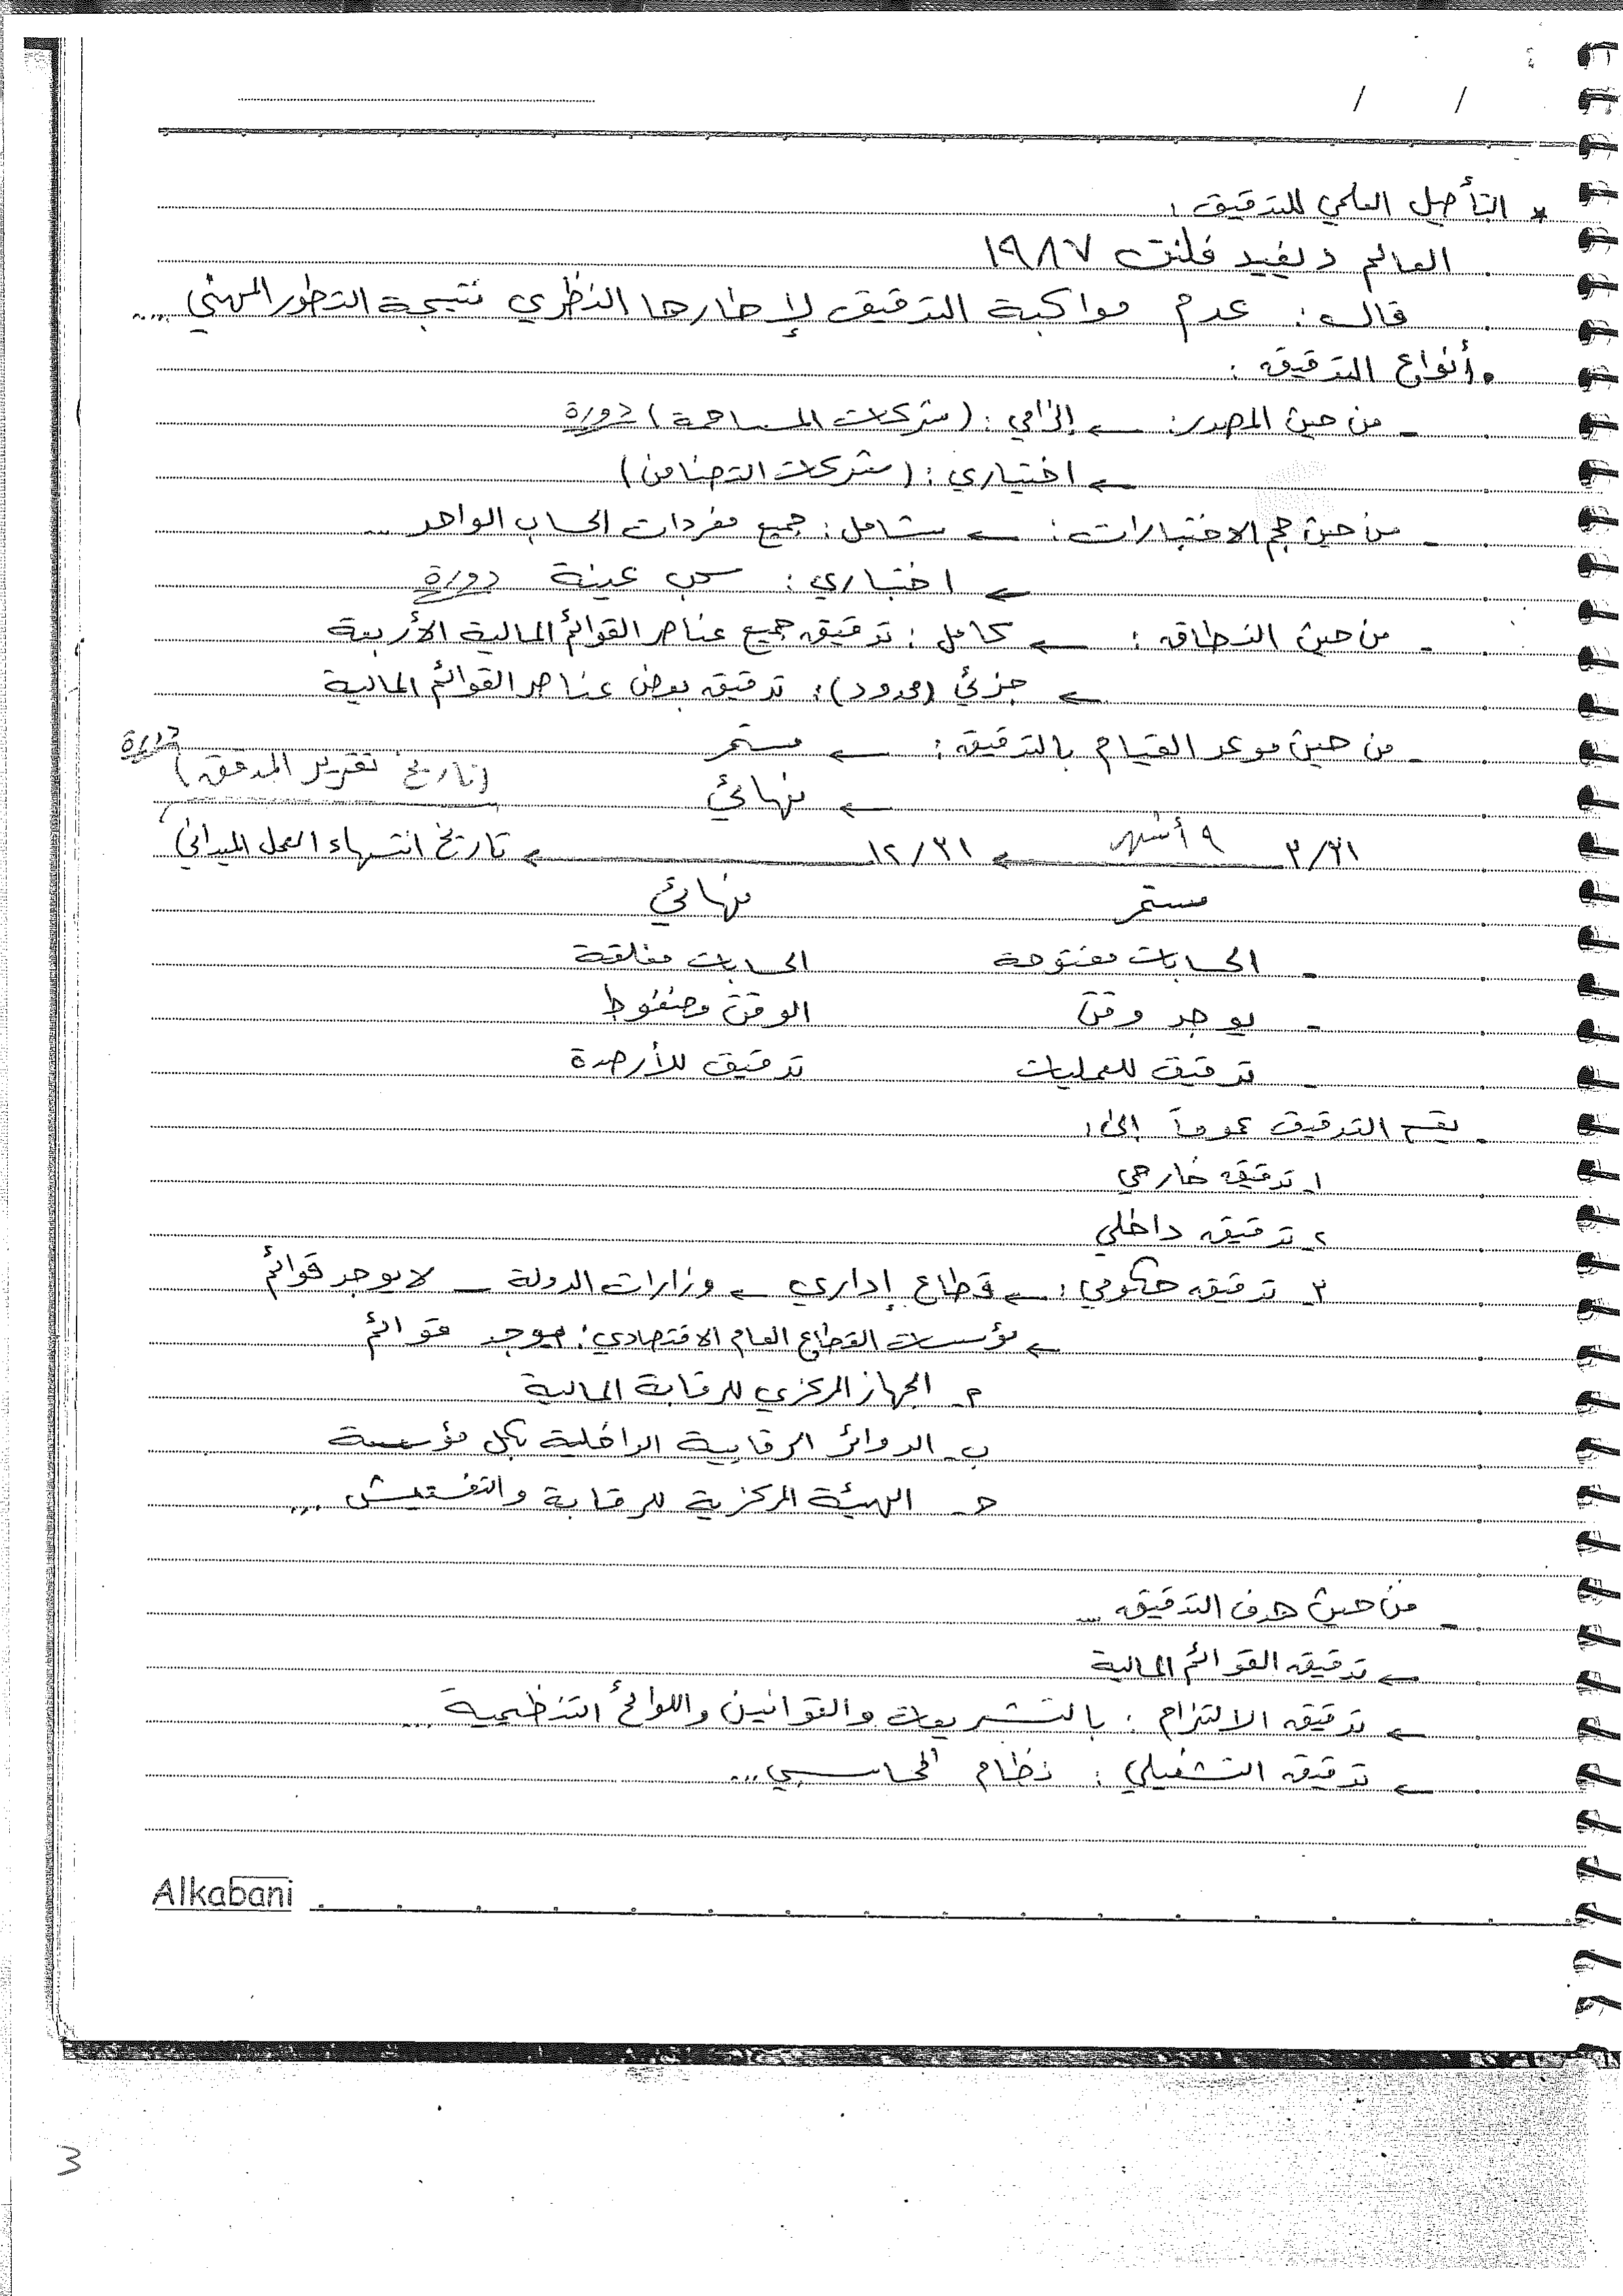 / /
* التأصيل العلمي للتدقيق:
العالم دايفيد فلنت ١٩٨٧
قال: عدم مواكبة التدقيق لإطارها النظري نتيجة التطور المهني ....
• أنواع التدقيق:
- من حيث المصدر: ← إلزامي: (شركات المساهمة) دورة
← اختياري: (شركات التضامن)
- من حيث حجم الاختبارات: ← شامل: جميع مفردات الحساب الواحد ...
← اختباري: سحب عينة دورة
- من حيث النطاق: ← كامل: تدقيق جميع عناصر القوائم المالية الأربعة
← جزئي (محدود): تدقيق بعض عناصر القوائم المالية
- من حيث موعد القيام بالتدقيق: ← مستمر
← نهائي (تاريخ تقرير المدقق) دورة
٣/٣١ ٩ أشهر ← ١٢/٣١ ← تاريخ انتهاء العمل الميداني
مستمر نهائي
- الحسابات مفتوحة الحسابات مغلقة
- يوجد وقت الوقت مضغوط
- تدقيق للعمليات تدقيق للأرصدة
- يقسم التدقيق عموماً إلى:
١- تدقيق خارجي
٢- تدقيق داخلي
٣- تدقيق حكومي: ← قطاع إداري ← وزارات الدولة - لا يوجد قوائم
← مؤسسات القطاع العام الاقتصادي: يوجد قوائم
م- الجهاز المركزي للرقابة المالية
ب- الدوائر الرقابية الداخلية بكل مؤسسة
ح- الهيئة المركزية للرقابة والتفتيش ...
- من حيث هدف التدقيق ...
← تدقيق القوائم المالية
← تدقيق الالتزام: بالتشريعات والقوانين واللوائح التنظيمية ...
← تدقيق التشغيلي: نظام المحاسبي ...
Alkabani
3